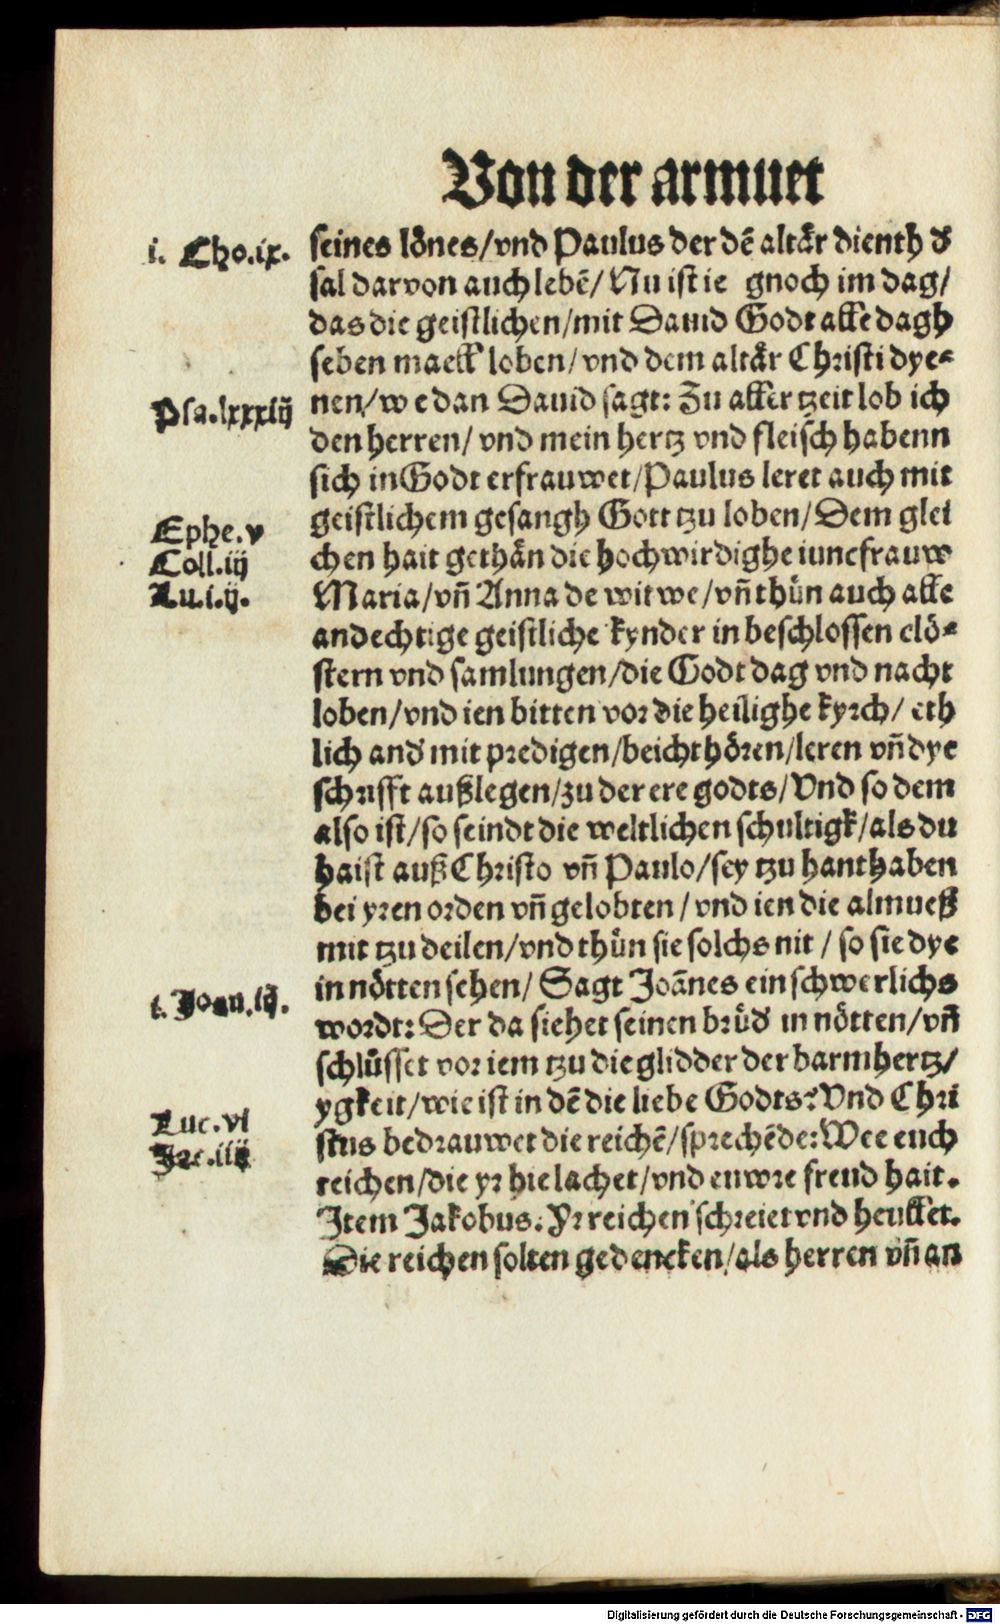 Von der armuet
i. Cho.ix.
seines lönes/vnd Paulus der dē altår dienth ď
sal darvon auch lebē/ Nu ist ie gnoch im dag/
das die geistlichen/mit Dauid Godt alle dagh
seben maell loben/ vnd dem altår Christi dye-
Psa.lxxxiij
nen/we dan Dauid sagt: Zu aller tzeit lob ich
den herren/ vnd mein hertz vnd fleisch habenn
sich in Godt erfrauwet/Paulus leret auch mit
Ephe.v
geistlichem gesangh Gott tzu loben/Dem glei
Coll.iij
chen hait gethån die hochwirdighe iuncfrauw
Lu.i.ij.
Maria/vn̄ Anna de witwe/vn̄ thůn auch alle
andechtige geistliche kynder in beschlossen clö-
stern vnd samlungen/die Godt dag vnd nacht
loben/vnd ien bitten vor die heilighe kyrch/ eth
lich anď mit predigen/beicht hören/leren vn̄ dye
schrifft außlegen/zu der ere godts/Vnd so dem
also ist/so seindt die weltlichen schultigk/als du
haist auß Christo vn̄ Paulo/sey tzu hanthaben
bei yren orden vn̄ gelobten/vnd ien die almueß
mit tzu deilen/vnd thůn sie solchs nit/so sie dye
in nötten sehen/ Sagt Joānes ein schwerlichs
i. Joan.iij.
wordt: Der da siehet seinen brůď in nötten/vn̄
schlůsset vor iem tzu die glidder der barmhertz/
ygkeit/wie ist in dē die liebe Godts? Vnd Chri
Luc.vi
stus bedrauwet die reichē/sprechēde: Wee euch
Jac.iiij
reichen/die yr hie lachet/vnd euwre freud hait.
Item Jakobus. Yr reichen schreiet vnd heullet.
Die reichen solten gedencken/als herren vn̄ an
Digitalisierung gefördert durch die Deutsche Forschungsgemeinschaft - DFG